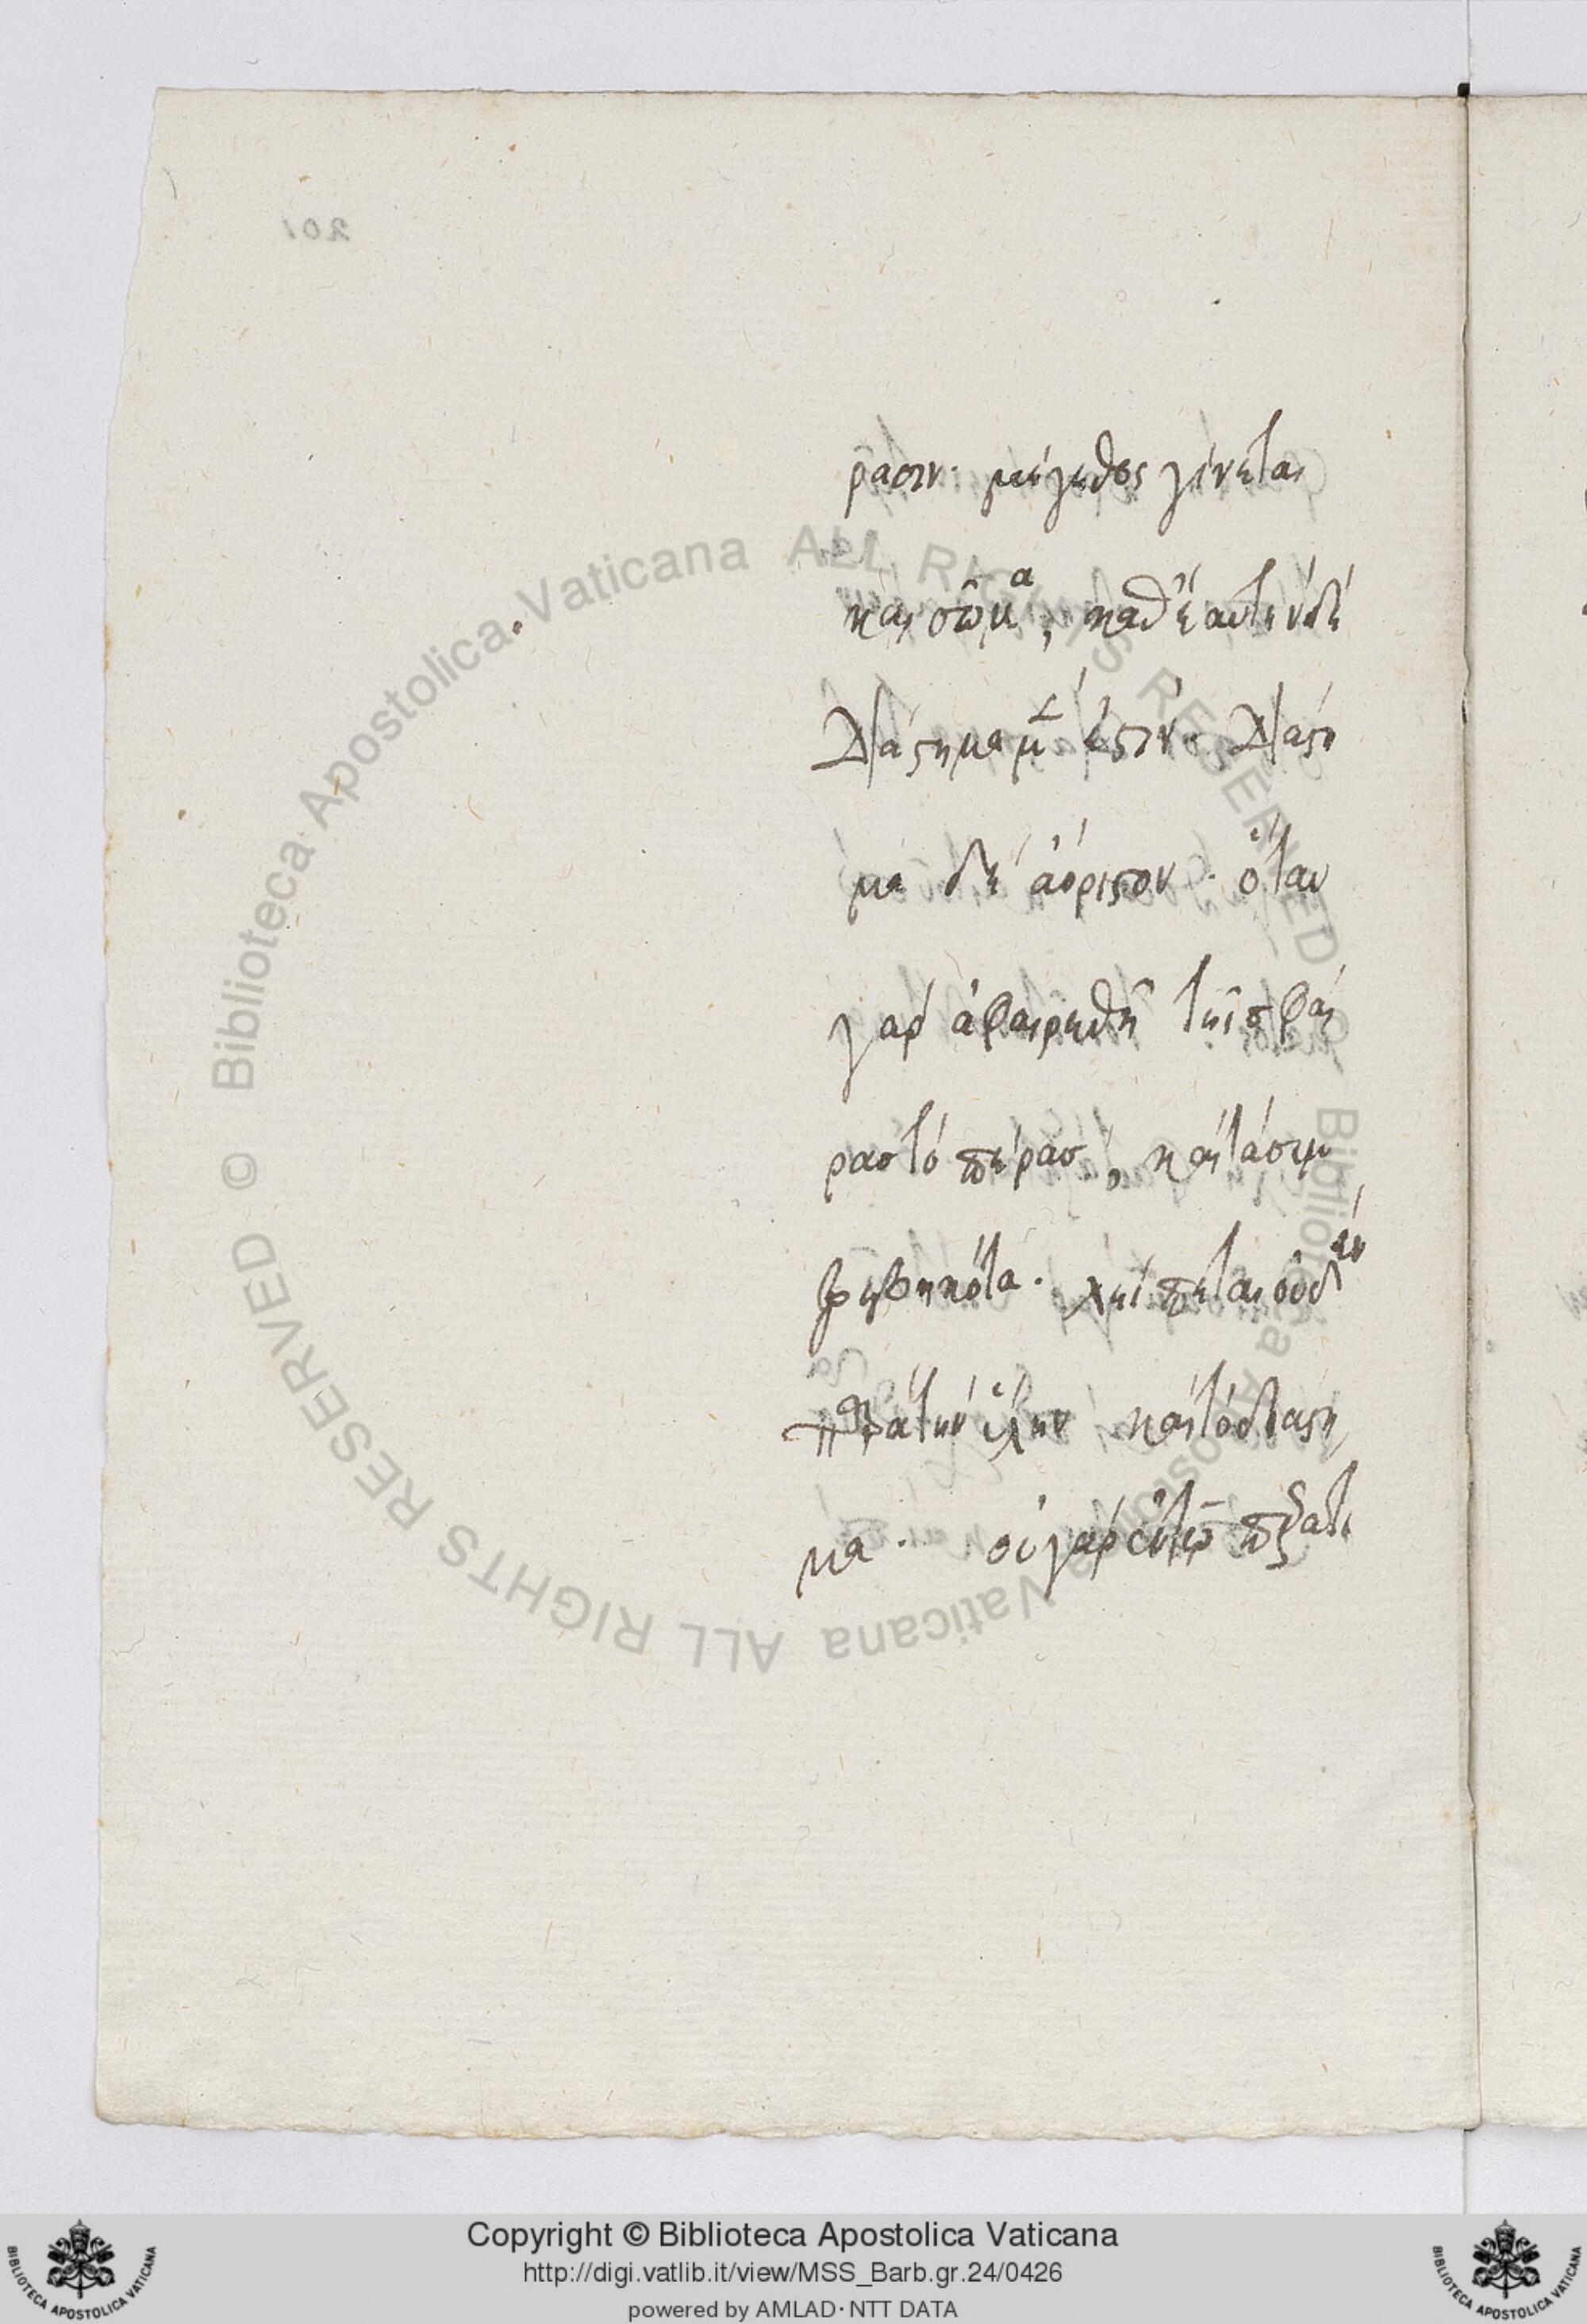 ρασιν. μέγεθος γίνεται
και σῶμα, καθ' ἑαυτην δὲ
διάστημα μ ἐστιν. διάστη
μα δὲ ἀόριστον. ὅταν
γαρ ἀφαιρεθῆ τῆς σφαί
ρας τὸ πέρασ, και τὰ συμ
βεβηκότα. λείπεται οὐδὲν
παρὰ τὴν ὕλην και τὸ διάστη
μα. οὐ γαρ ἐν τῶ πέρατι
201
Biblioteca Apostolica Vaticana ALL RIGHTS RESERVED ©
Biblioteca Apostolica Vaticana ALL RIGHTS RESERVED ©
Copyright © Biblioteca Apostolica Vaticana
http://digi.vatlib.it/view/MSS_Barb.gr.24/0426
powered by AMLAD·NTT DATA
BIBLIOTECA APOSTOLICA VATICANA
BIBLIOTECA APOSTOLICA VATICANA